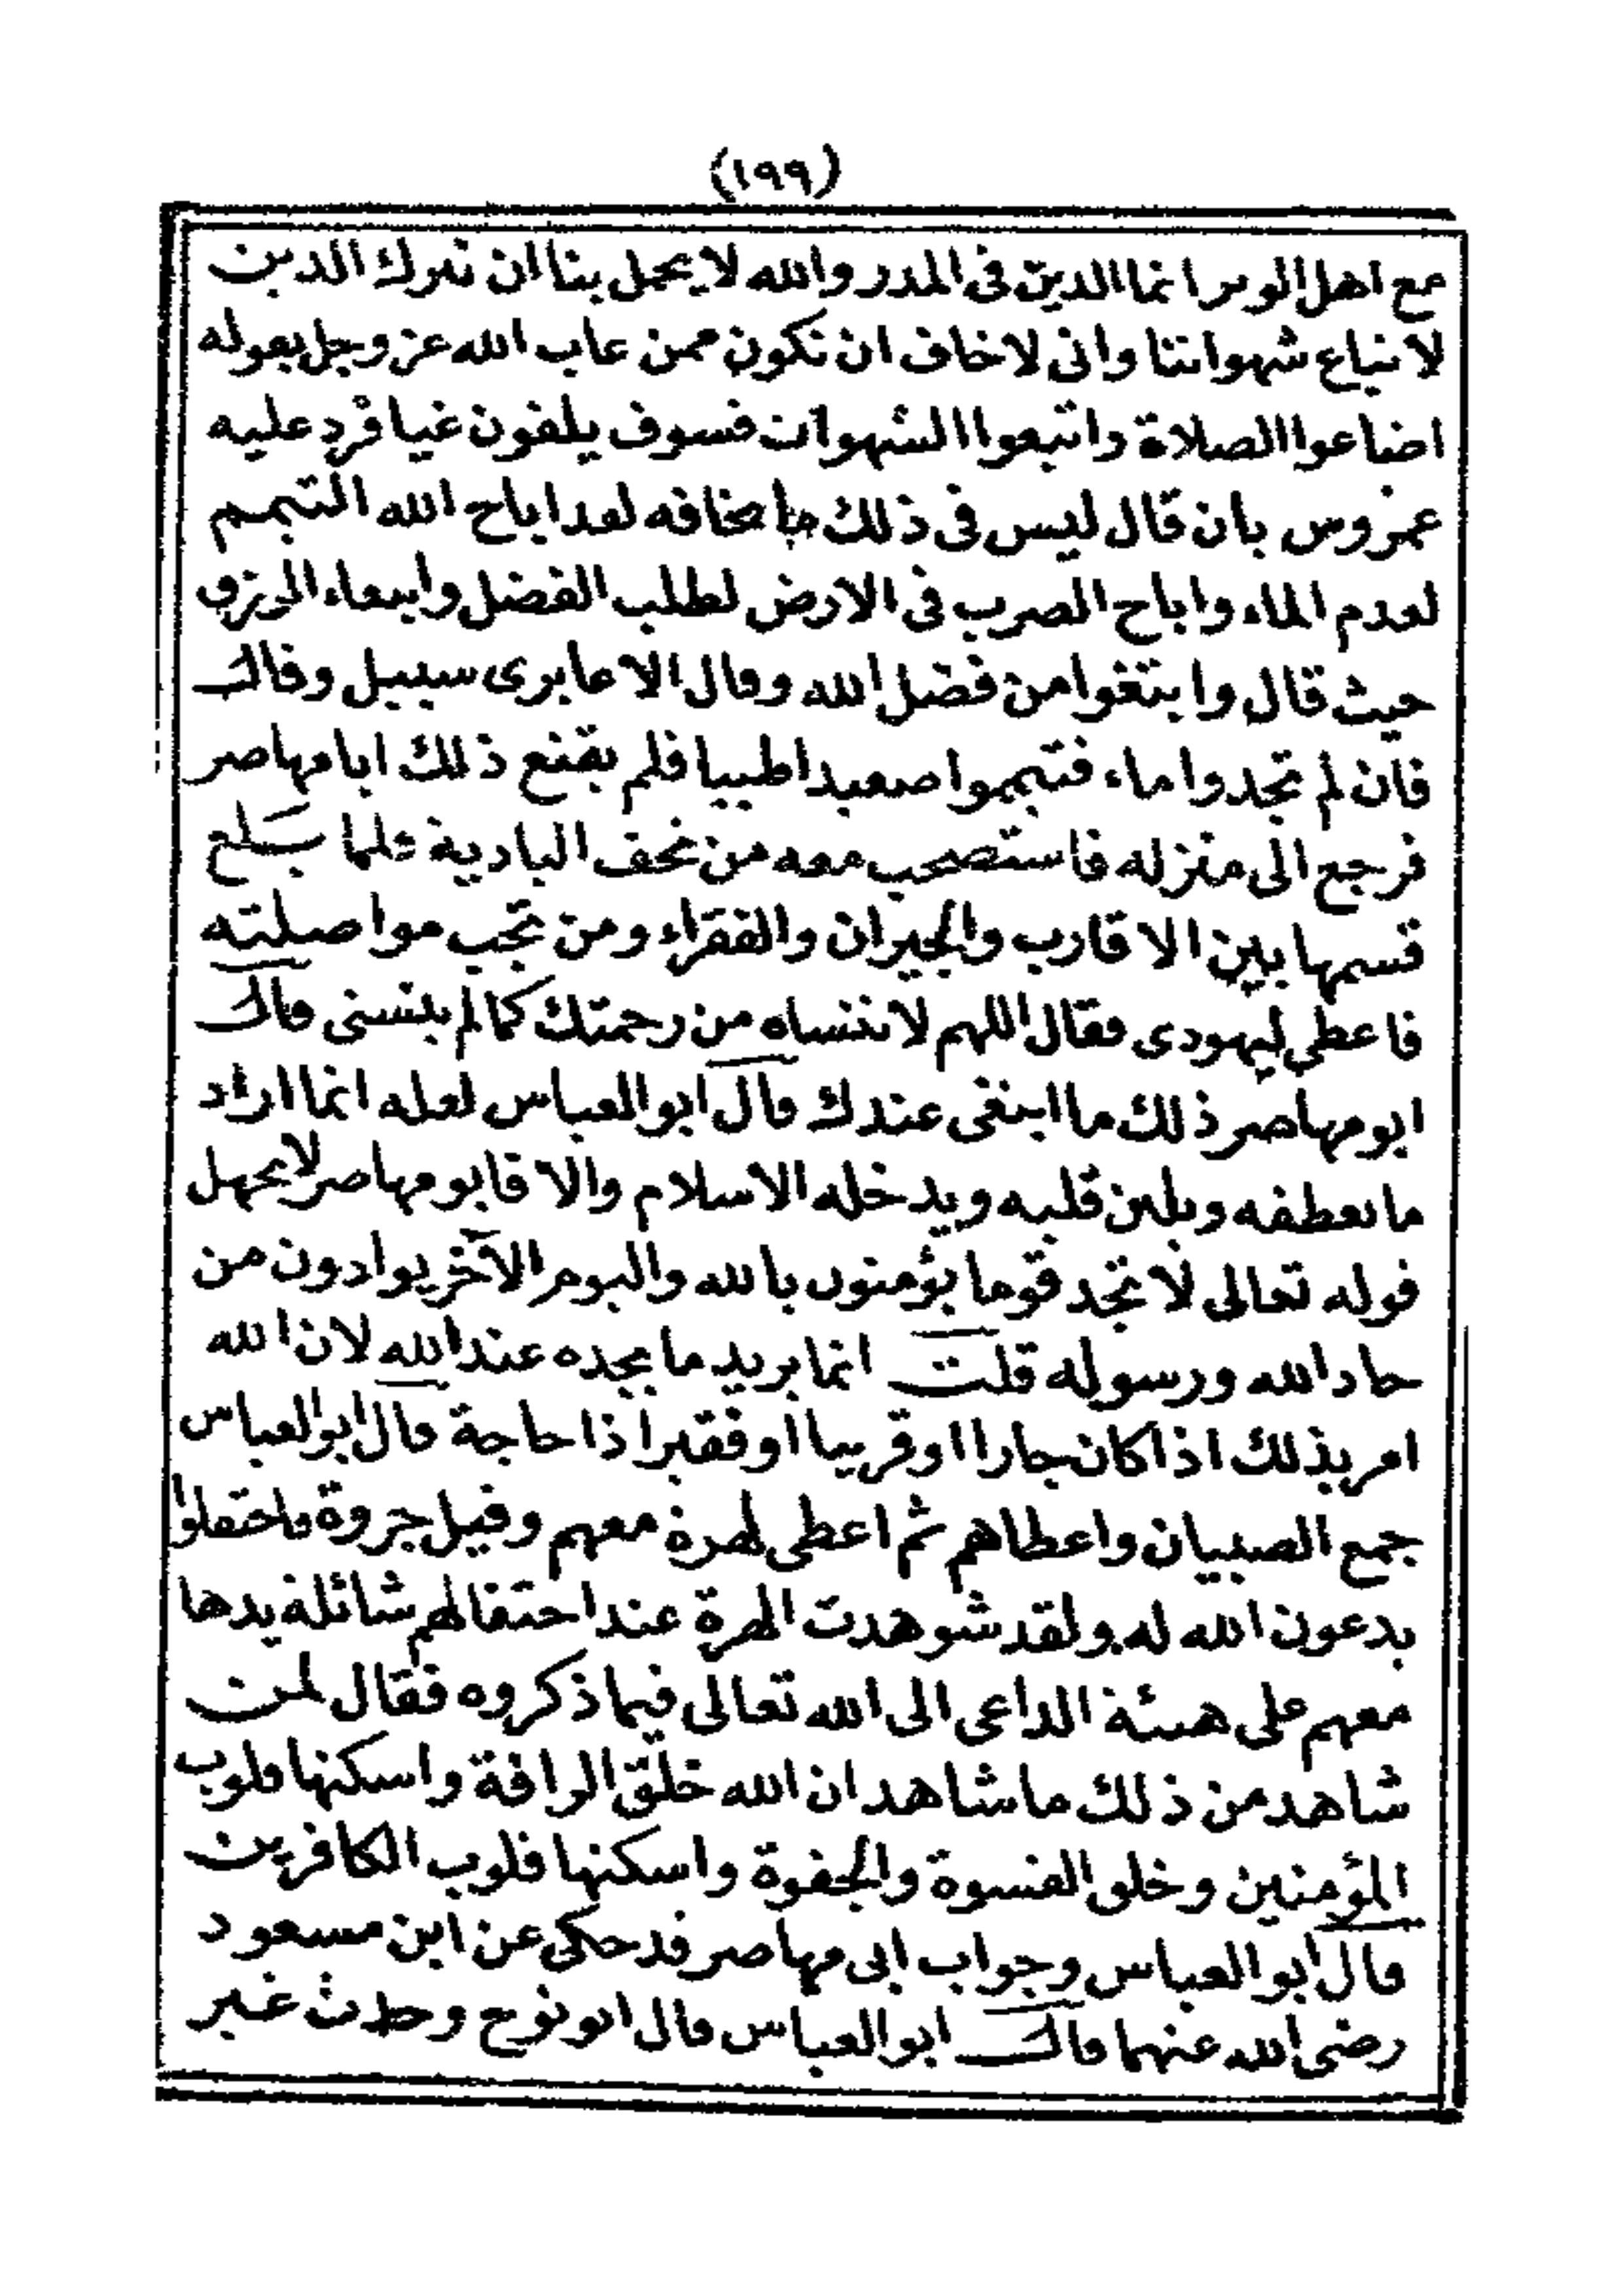 (١٩٩)
مع اهل الوبر انما الدين فى المدر والله لا يجمل بنا ان نترك الدين
لاتباع شهواتنا وانى لاخاف ان نكون ممن عاب الله عز وجل بقوله
اضاعوا الصلاة واتبعوا الشهوات فسوف يلقون غيا فرد عليه
عمروس بان قال ليس فى ذلك ما تخافه لقد اباح الله التيمم
لعدم الماء واباح الضرب فى الارض لطلب الفضل وابتغاء الرزق
حيث قال وابتغوا من فضل الله وقال الا عابرى سبيل وقال
فان لم تجدوا ماء فتيمموا صعيدا طيبا فلم يقنع ذلك ابا مهاصر
فرجع الى منزله فاستصحب معه من تحف البادية فلما بلغ
قسمها بين الاقارب والجيران والفقراء ومن تجب مواصلته
فاعطى ليهودى فقال اللهم لا تنساه من رحمتك كما لم ينسنى قال
ابو مهاصر ذلك ما ابتغى عندك قال ابو العباس لعله انما اراد
ما يعطفه ويلين قلبه ويدخله الاسلام والا فابو مهاصر لا يجهل
قوله تعالى لا تجد قوما يؤمنون بالله واليوم الآخر يوادون من
حاد الله ورسوله قلت انما يريد ما يجده عند الله لان الله
امر بذلك اذا كان جارا او قريبا او فقيرا ذا حاجة قال ابو العباس
جمع الصبيان واعطاهم ثم اعطى لهرة معهم وقيل جروة فاحتفلوا
يدعون الله له ولقد شوهدت الهرة عند احتفالهم شائلة يدها
معهم على هيئة الداعى الى الله تعالى فيما ذكروه فقال لمن
شاهد من ذلك ما شاهد ان الله خلق الرافة واسكنها قلوب
المؤمنين وخلق القسوة والجفوة واسكنها قلوب الكافرين
قال ابو العباس وجواب ابى مهاصر قد حكى عن ابن مسعود
رضى الله عنهما قال ابو العباس قال ابو نوح وحدث غير